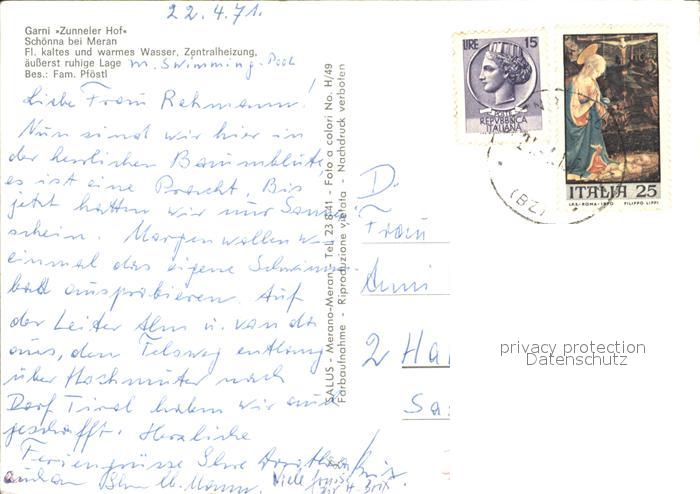 22.4.71.
Garni »Zunneler Hof«
Schönna bei Meran
Fl. kaltes und warmes Wasser, Zentralheizung,
äußerst ruhige Lage m. Swimming-Pool
Bes.: Fam. Pföstl
Liebe Frau Rehmann!
Nun sind wir hier in
der herrlichen Baumblüte,
es ist eine Pracht. Bis
jetzt hatten wir nur Sonnen-
schein. Morgen wollen wir
einmal das eigene Schwimm-
bad ausprobieren. Auf
der Leiter Alm u. von da
aus, den Felsweg entlang
über Hochmuter nach
Dorf Tirol haben wir auch
geschafft. Herzliche
Feriengrüsse Ihre
Ihr Mann. Viele
SALUS - Merano-Meran - Tel. 23 8 41 - Foto a colori No. H/49
Farbaufnahme - Riproduzione vietata - Nachdruck verboten
LIRE 15
POSTE
REPVBBLICA
ITALIANA
ITALIA 25
I.P.S.-ROMA-1970 FILIPPO LIPPI
(BZ)
D.
Frau
2 Ha
Sa
privacy protection
Datenschutz